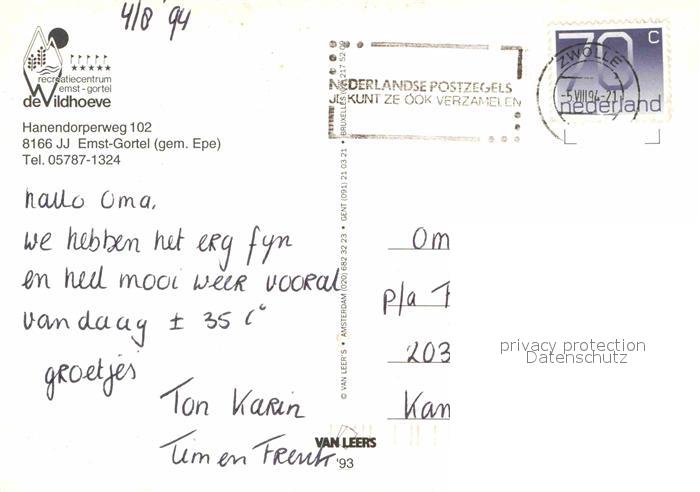 4/8 '94
recreatiecentrum
emst-gortel
de Wildhoeve
Hanendorperweg 102
8166 JJ Emst-Gortel (gem. Epe)
Tel. 05787-1324
NEDERLANDSE POSTZEGELS
JE KUNT ZE OOK VERZAMELEN
ZWOLLE
-5.VIII.94-21
70 c
nederland
hallo Oma,
we hebben het erg fyn
en heel mooi weer vooral
vandaag ± 35 C°
groetjes
Ton Karin
Tim en
© VAN LEER'S • AMSTERDAM (020) 682 32 23 • GENT (091) 21 03 21 • BRUXELLES (02) 217 52 09
VAN LEER'S
'93
Om
p/a T
203
Kan
privacy protection
Datenschutz